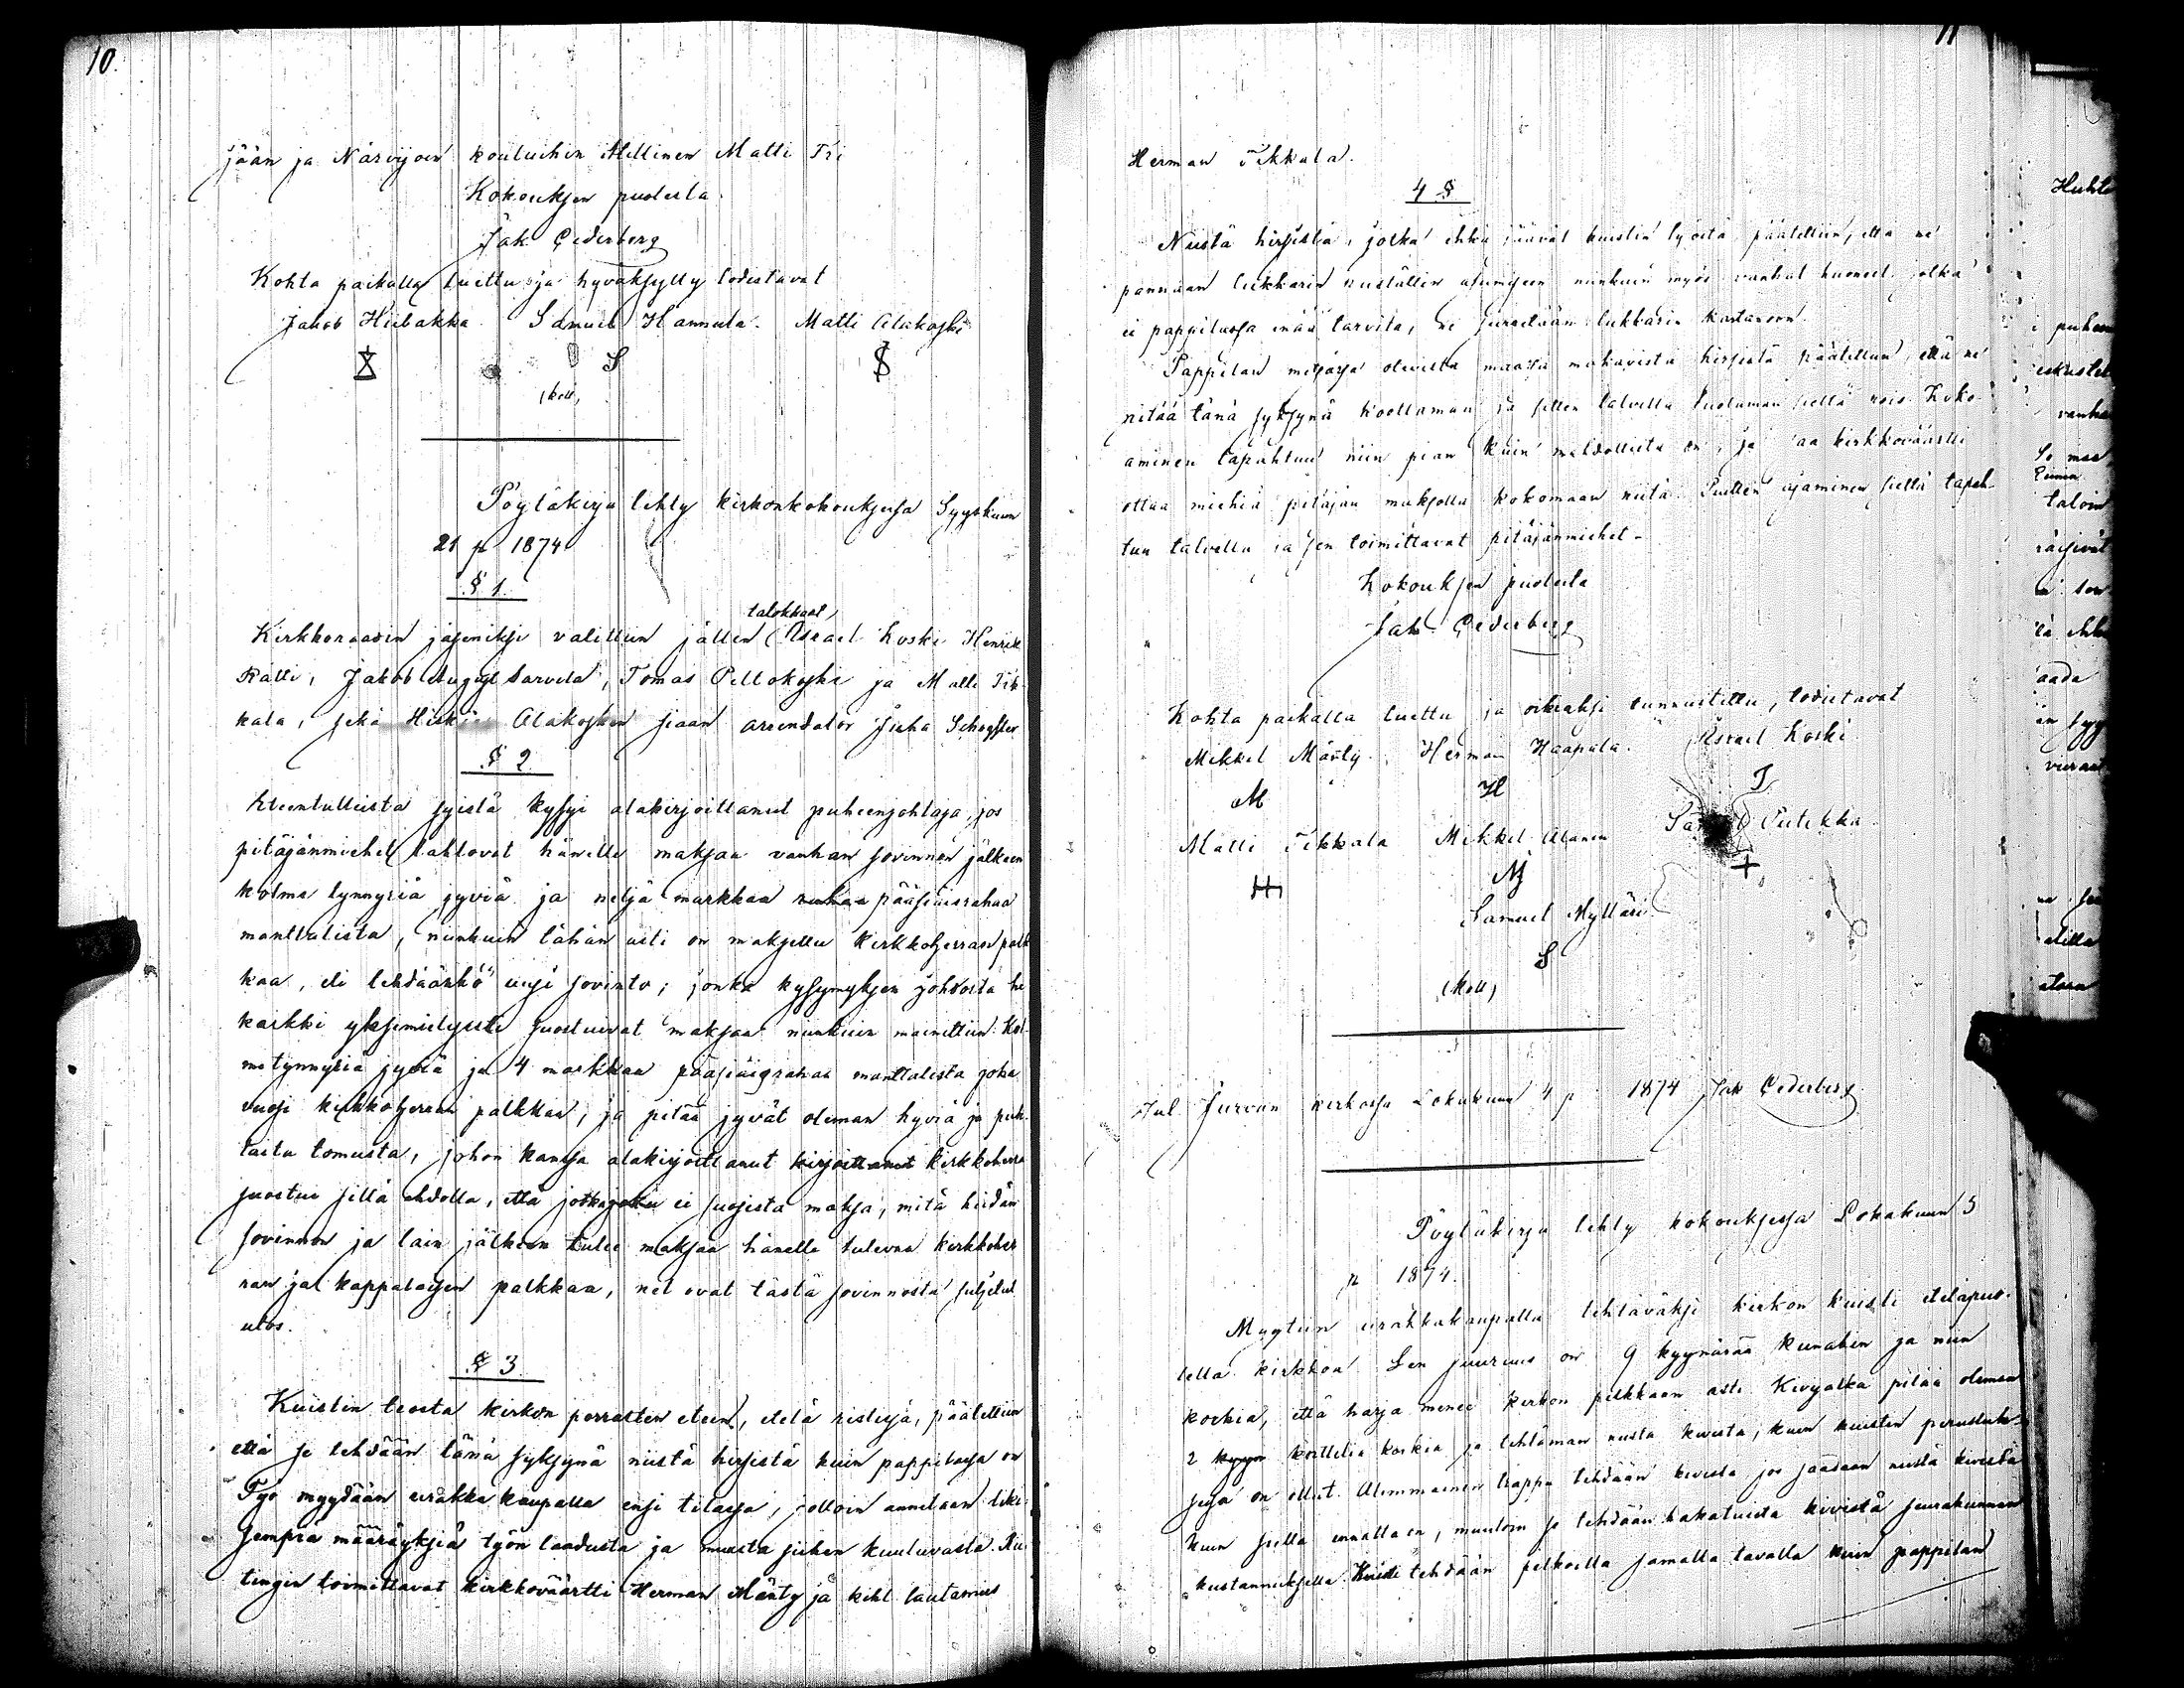 10.
jään ja Närvijoen kouluihin Millinen Matti Tri
Kokouksen puolesta
Jak Cederberg
Kohta paikalla luettu ja hyväksytty todistavat
Jakob Hiibakka Samuel Hannula. Matti Alakoski
S
(koll)
Pöytäkirja tehty kirkonkokouksessa Syyskuun
21 p 1874
§ 1.
talokkaat,
Kirkkoraadin jäseniksi valittiin jällen (Israel Koski Henrik
Rätti, Jakob August Sarvela, Tomas Pellokoski ja Matti Tik-
kala, sekä Alakosken siaan arrendator Juha
§ 2
kysyi alakirjoittanut puheenjohtaja, jos
pitäjänmiehet tahtovat hänelle maksaa vanhan sovinnon jälkeen
kolme tynnyriä jyviä ja neljä markkaa rahaa pääsiäisrahaa
manttalista, niinkuin tähän asti on maksettu kirkkoherran palk
kaa, eli tehdäänkö uusi sovinto; jonka kysymyksen johdosta he
kaikki yksimielisesti suostuivat maksaa niinkuin mainittiin: Kol-
me tynnyriä jyviä ja 4 markkaa pääsiäisrahaa manttalista joka
vuosi kirkkoherran palkkaa, ja pitää jyvät oleman hyviä ja puh-
taita tomusta, johon kanssa alakirjoittanut kirjoittanut kirkkoherra
suostui sillä ehdolla, että jos joku ei suosista maksa, mitä heidän
sovinnon ja lain jälkeen tulee maksaa hänelle tulevna kirkkoher
ran ja kappalaisen palkkaa, net ovat tästä sovinnosta suljetut
ulos.
§ 3.
Kuistin teosta kirkon porrasten eteen, etelä ristissä, päätettiin
että se tehdään tänä syksynä niistä hirsistä kuin pappilassa on
Työ myydään urakka kaupalla ensi tilassa, jolloin annetaan liki-
sempiä määräyksiä työn laadusta ja muusta siihen kuuluvasta. Ri-
tingin toimittavat kirkkoväärtti Herman Mänty ja kihl lautamies
11
Herman Tikkala.
4 §
Niistä hirsistä, jotka ehkä jäävät kuistin työstä päätettiin, että ne
pannaan lukkarin niinkuin myös vanhat huoneet jotka
ei pappilassa enää tarvita, ne siirretään lukkarin kartanoon.
Pappilan metsässä olevista maassa makavista hirsistä päätettiin, että ne
pitää tänä syksynä koottaman ja sitten talvella tuotaman sieltä pois. Koko-
aminen tapahtuu niin pian kuin mahdollista on, ja saa kirkkoväärtti
ottaa miehiä pitäjän maksolla kokomaan niitä. Puitten ajaminen sieltä tapah-
tuu talvella ja sen toimittavat pitäjänmiehet.
Kokouksen puolesta
Jak Cederberg
Kohta paikalla luettu ja oikiaksi tunnustettu, todistavat
Mikkel Mänty. Herman Haapala. Israel Koski.
M H I
Matti Tikkala Mikkel Alanen Piitikka
M +
Samuel Mylläri
S
(koll)
Jul Jurvan kirkossa Lokakuun 4 p 1874 Jak Cederberg
Pöytäkirja tehty kokouksessa Lokakuun 5
p 1874.
Myytiin urakkakaupalla tehtäväksi kirkon kuisti eteläpuo-
lella kirkkoa. Sen suuruus on 9 kyynärää kunakin ja niin
korkia, että harja menee kirkon pilkkaan asti. Kivijalka pitää oleman
2 kyyn korttelia korkia ja tehtämän niista kivistä, kuin kuistin
on ollut. Alimmainen trappu tehdään kivestä jos saadaan niistä kivistä
kuin siellä ennalta on, muutoin se tehdään hakatuista kivistä seurakunnan
kustannuksella. Kuisti tehdään pelkoilla samalla tavalla kuin pappilan